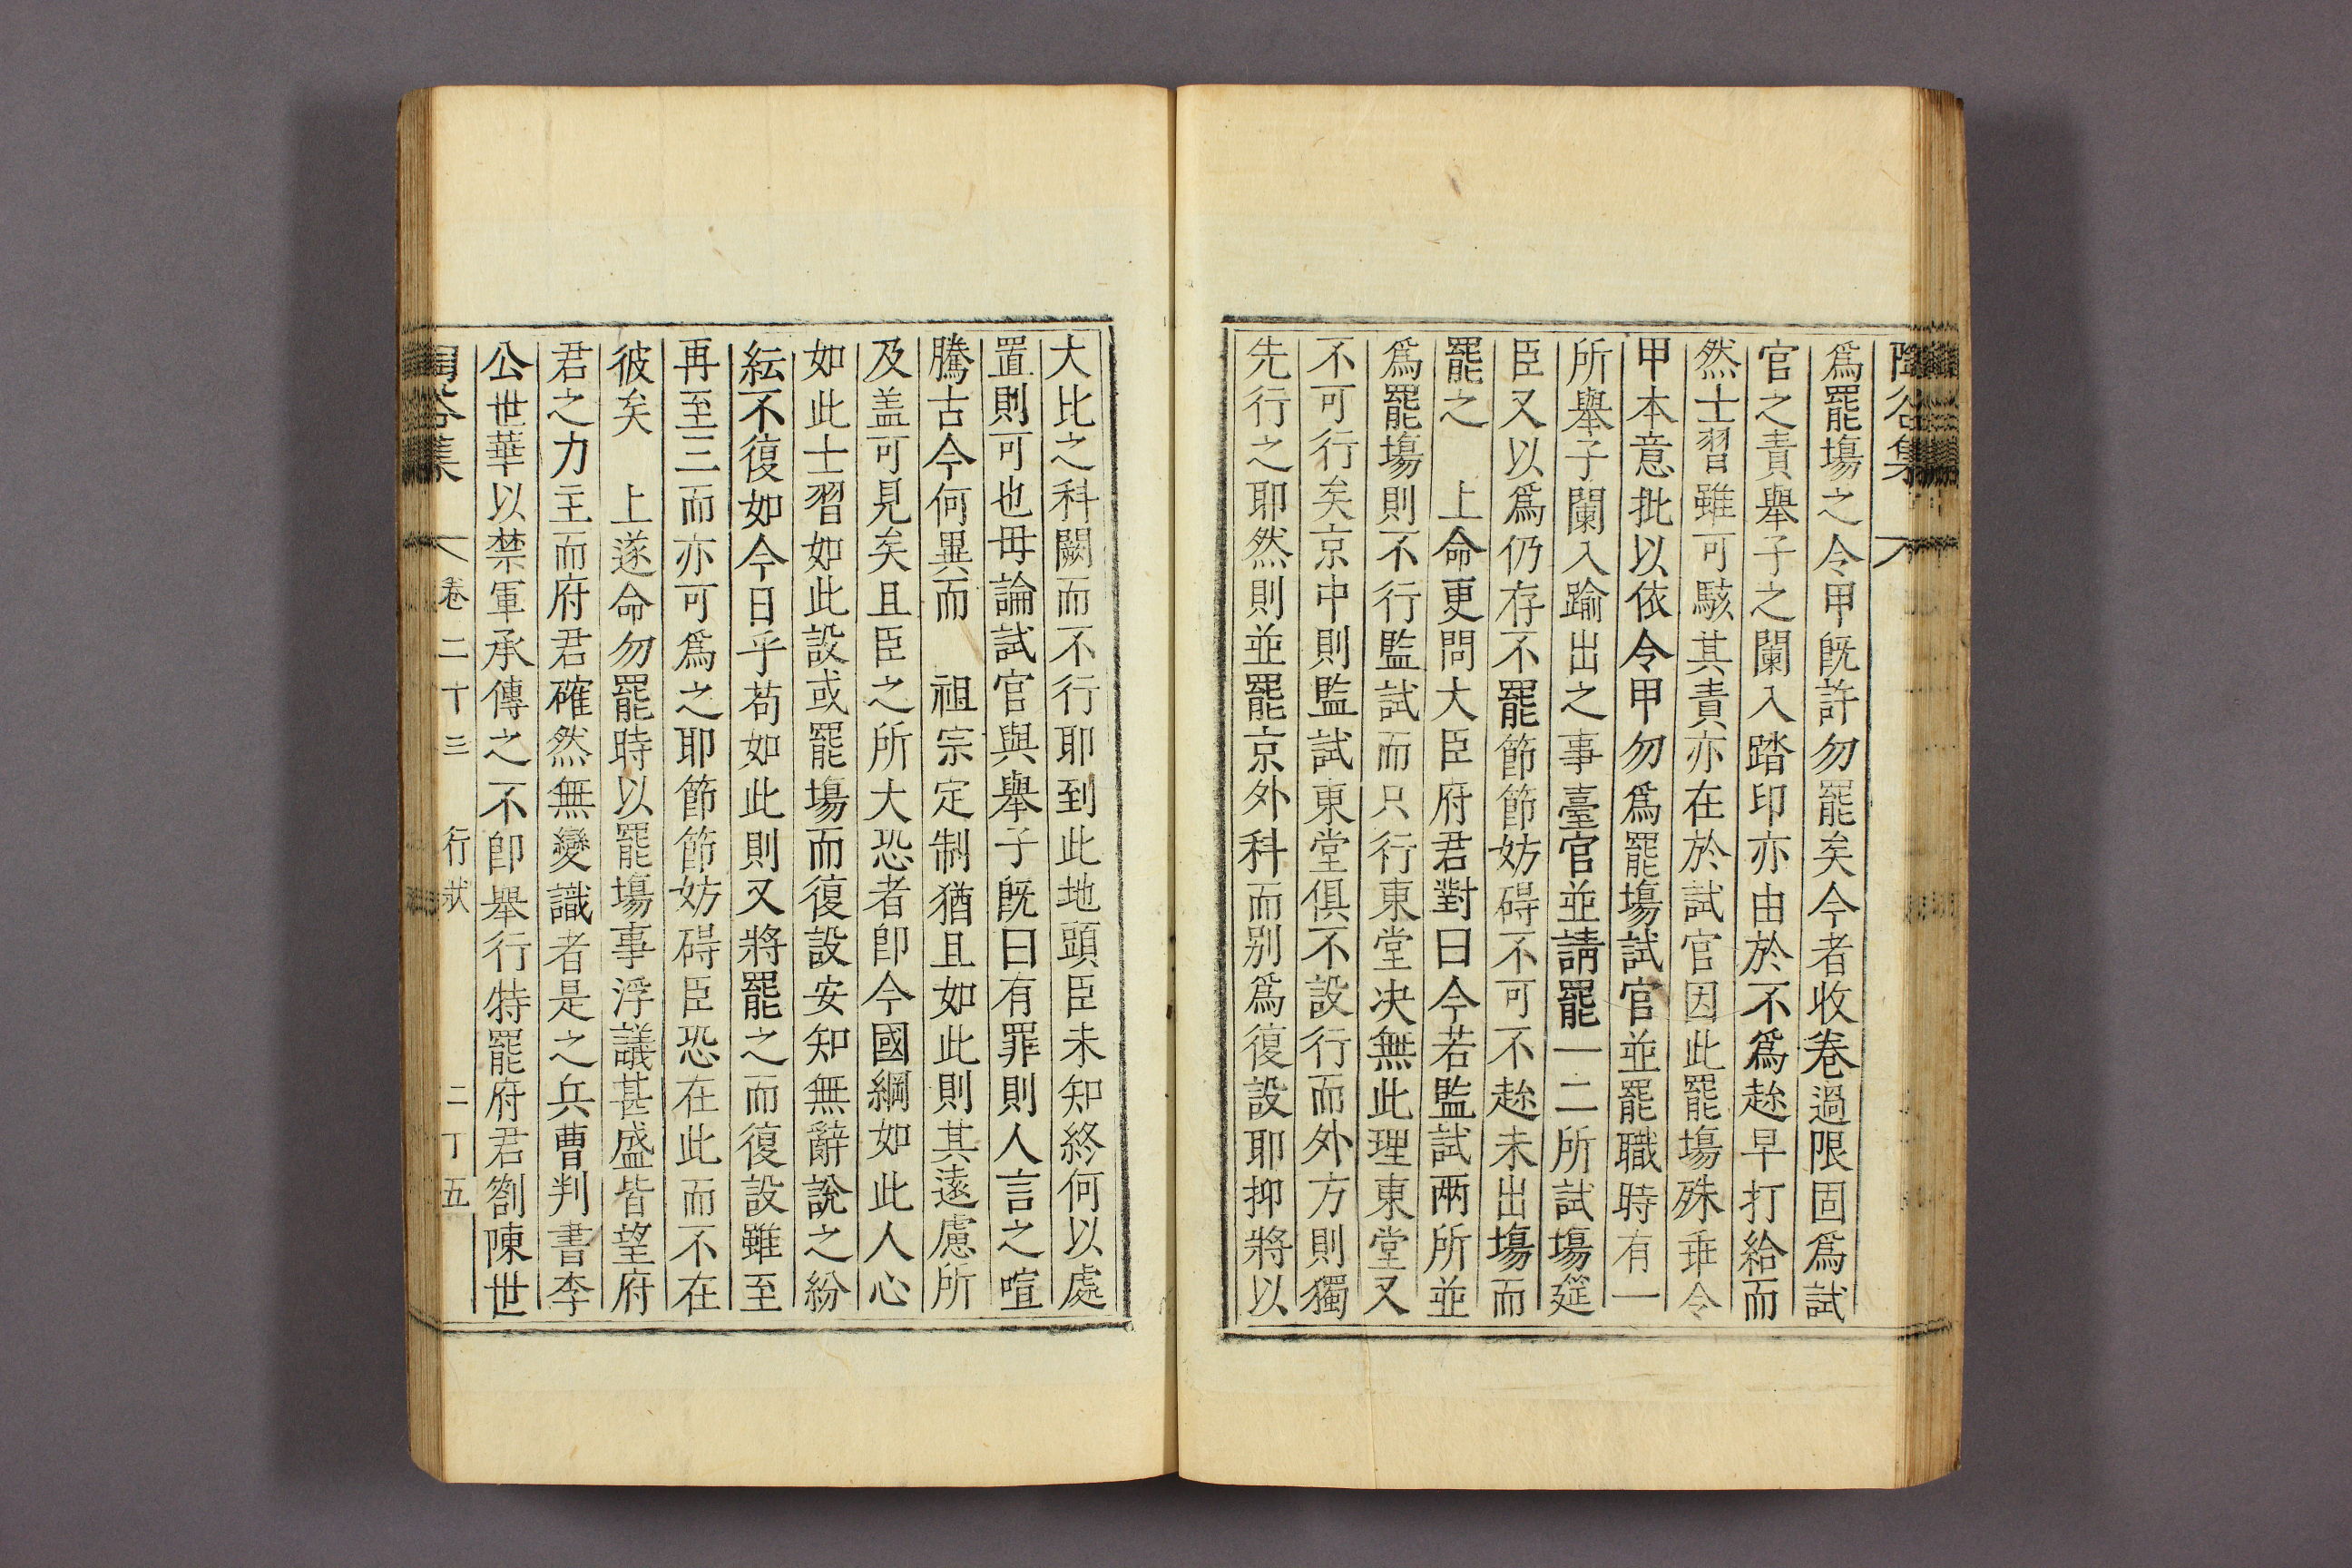 陶谷集
爲罷塲之令甲旣許勿罷矣今者收卷過限固爲試
官之責舉子之闌入踏印亦由於不爲趂早打給而
然士習雖可駭其責亦在於試官因此罷塲殊乖令
甲本意批以依令甲勿爲罷塲試官並罷職時有一
所舉子闌入踰出之事臺官並請罷一二所試塲筵
臣又以爲仍存不罷節節妨碍不可不趂未出塲而
罷之　上命更問大臣府君對曰今若監試兩所並
爲罷塲則不行監試而只行東堂决無此理東堂又
不可行矣京中則監試東堂俱不設行而外方則獨
先行之耶然則並罷京外科而别爲復設耶抑將以
大比之科闕而不行耶到此地頭臣未知終何以處
置則可也毋論試官與舉子旣曰有罪則人言之喧
騰古今何異而　祖宗定制猶且如此則其遠慮所
及盖可見矣且臣之所大恐者卽今國綱如此人心
如此士習如此設或罷塲而復設安知無辭說之紛
紜不復如今日乎苟如此則又將罷之而復設雖至
再至三而亦可爲之耶節節妨碍臣恐在此而不在
彼矣　上遂命勿罷時以罷塲事浮議甚盛皆望府
君之力主而府君確然無變識者是之兵曹判書李
公世華以禁軍承傳之不卽舉行特罷府君劄陳世
陶谷集　卷二十三　行狀　二丁五